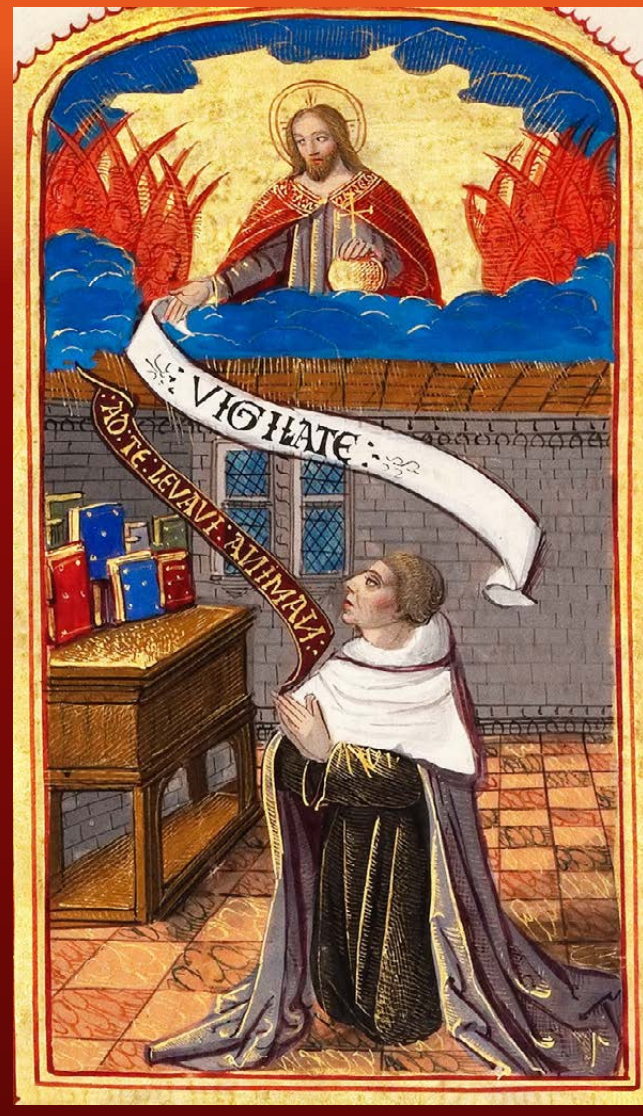 VIGILATE :
· AD · TE · LEVAVI · ANIMAM :